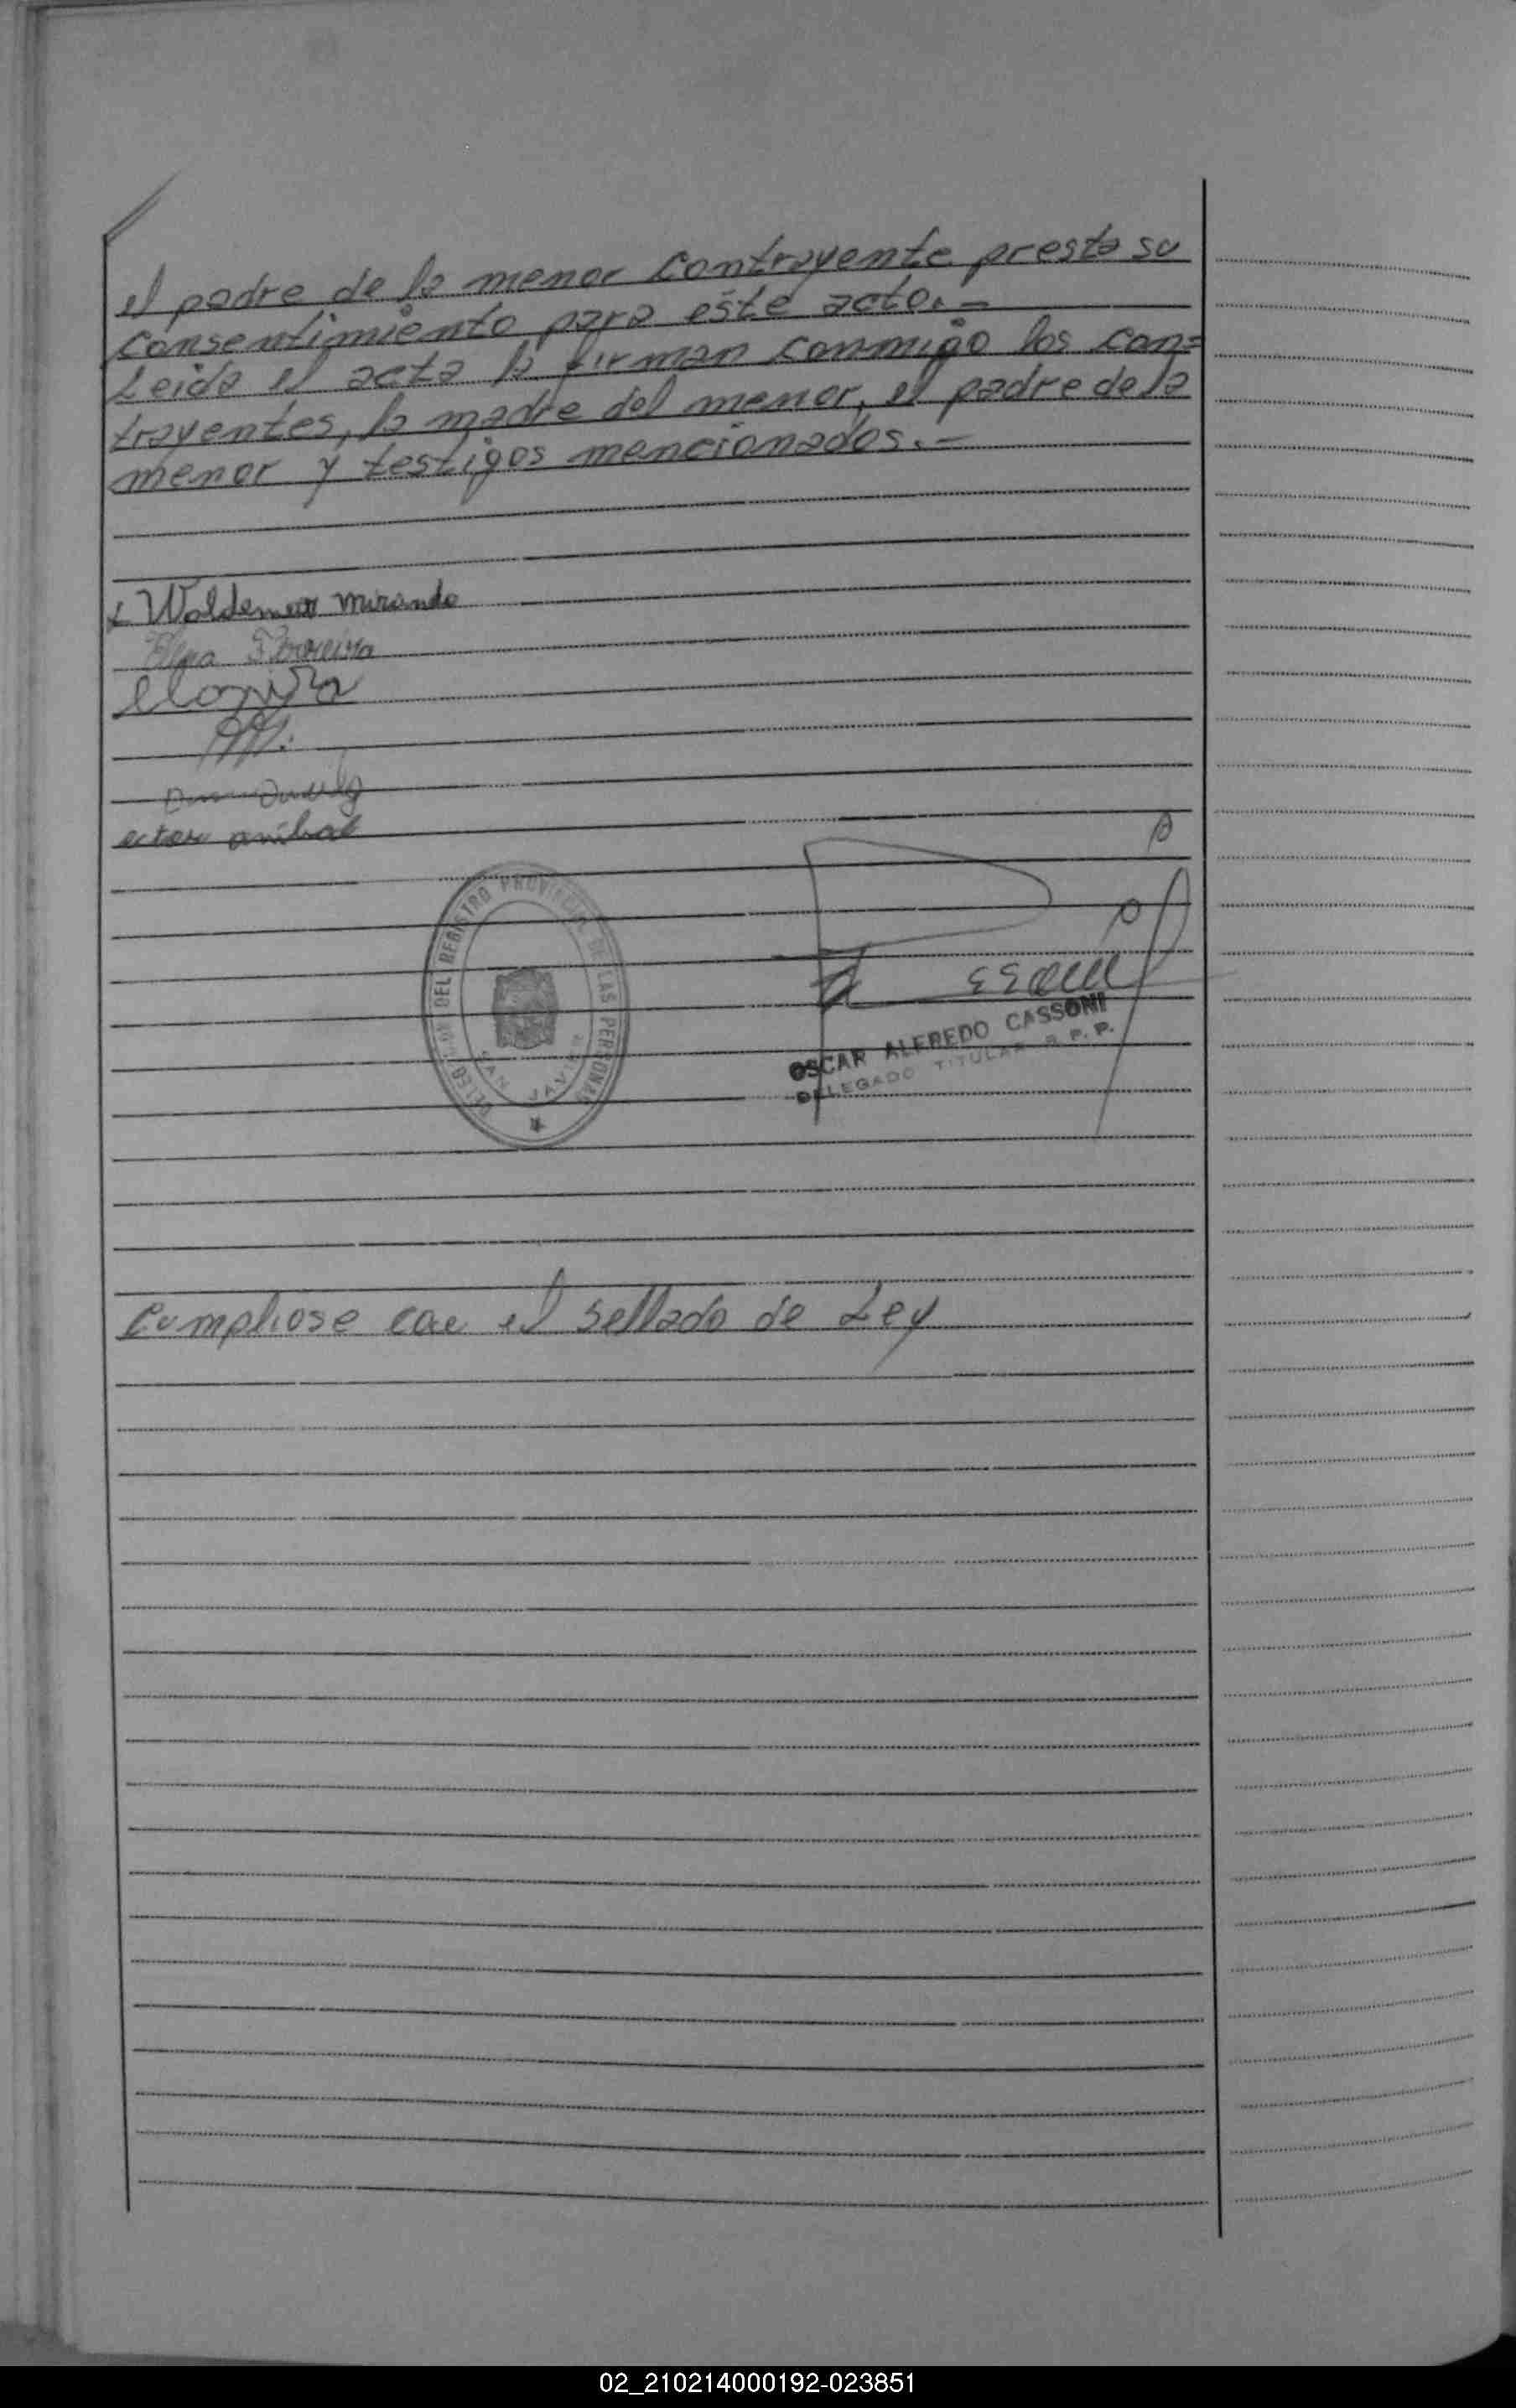 el padre de la menor contrayente presta su
consentimiento para éste acto.-
Leida el acta la firman conmigo los con=
trayentes, la madre del menor, el padre de la
menor y testigos mencionados.-
Waldemar Miranda
Ferreira
anibal
DELEGACION DEL REGISTRO PROVINCIAL DE LAS PERSONAS
SAN JAVIER
OSCAR ALFREDO CASSONI
DELEGADO TITULAR R. P. P.
Cumpliose con el sellado de Ley
02_210214000192-023851